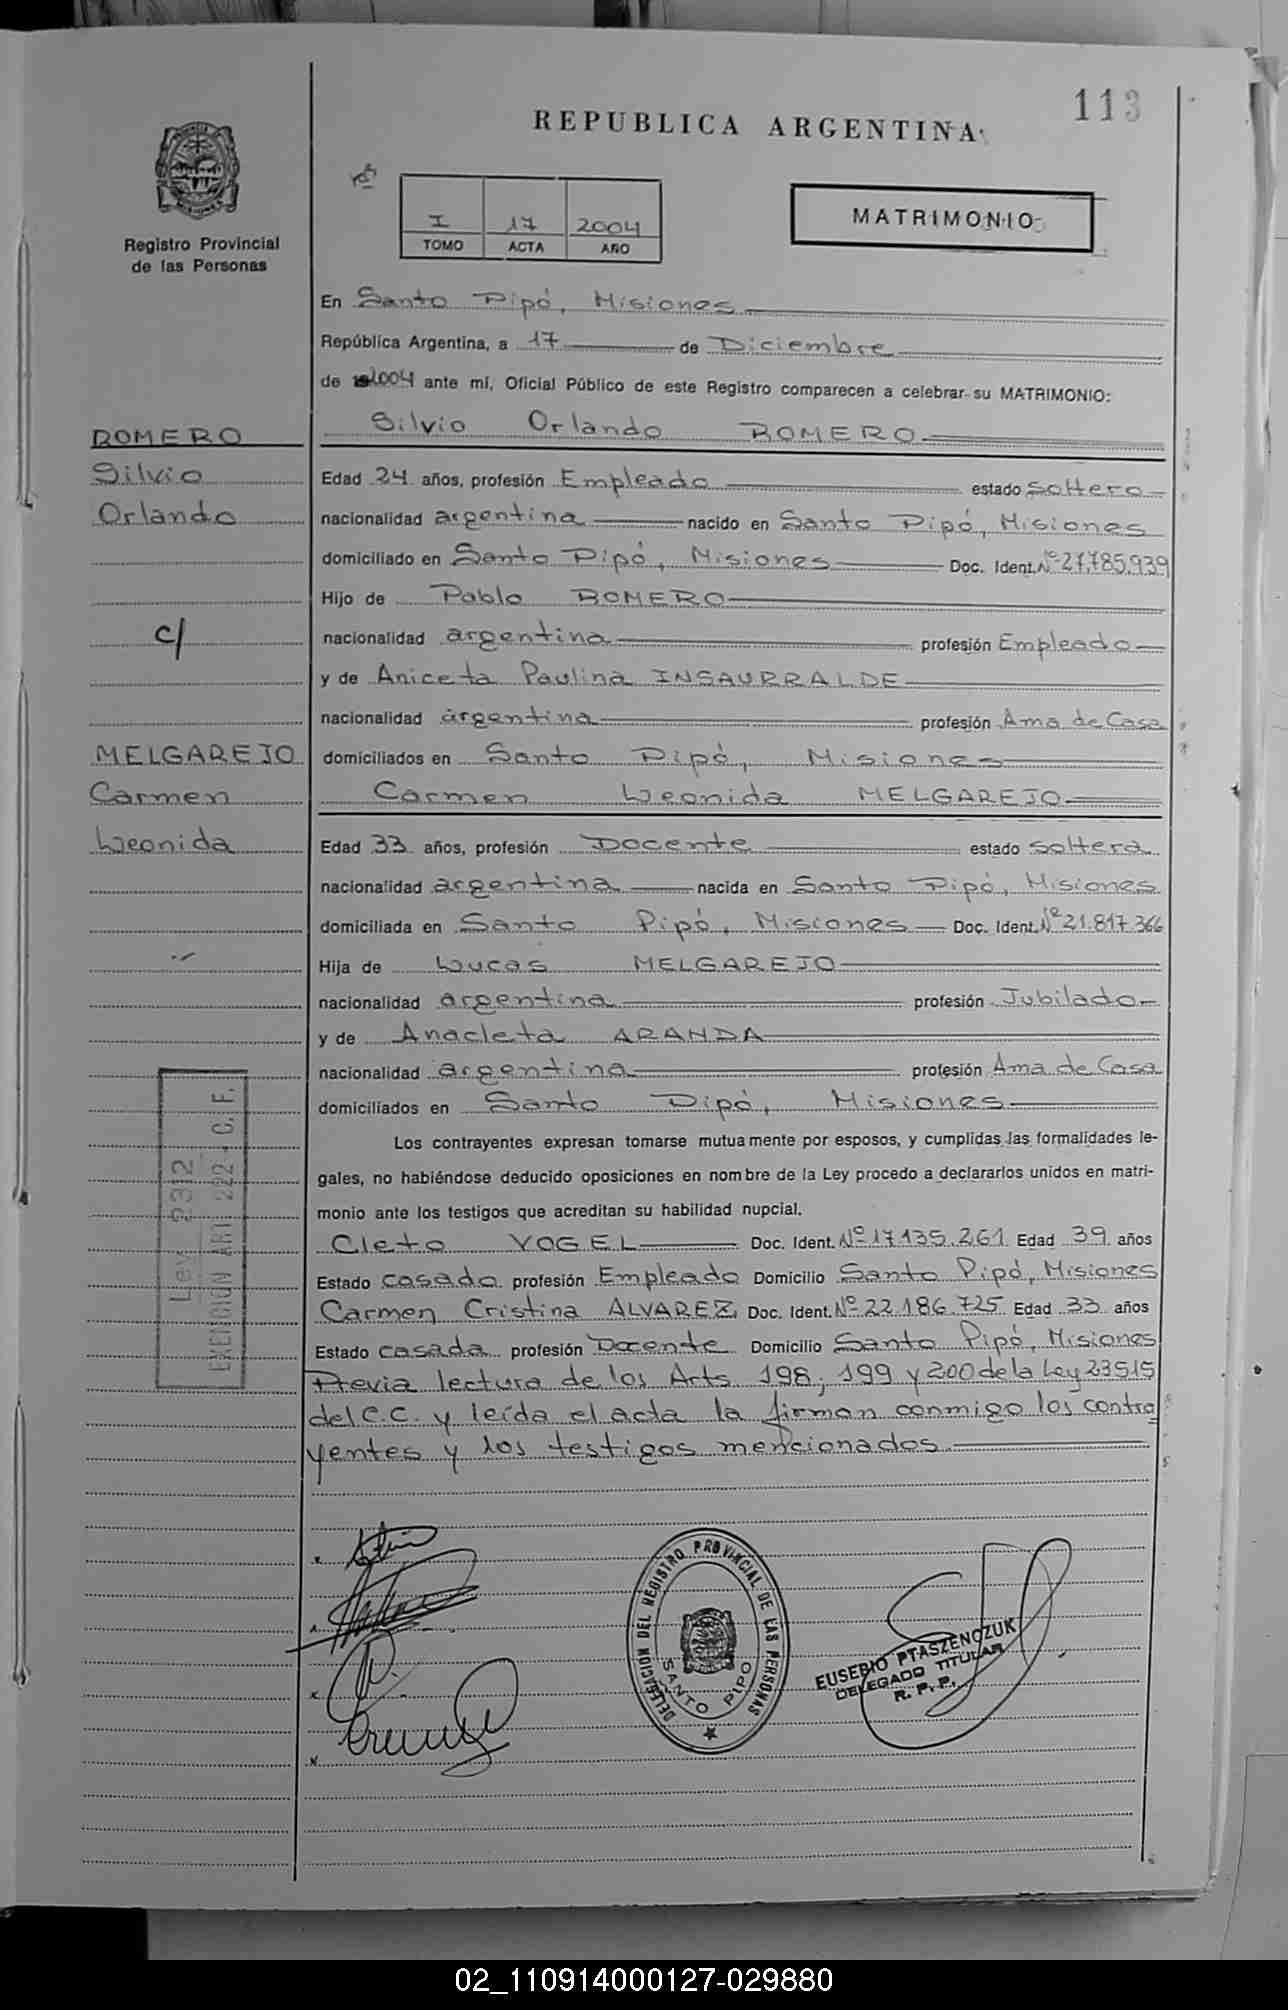 113
REPUBLICA ARGENTINA
Registro Provincial
de las Personas
I 17 2004
TOMO ACTA AÑO
MATRIMONIO
En Santo Pipó, Misiones
República Argentina, a 17 de Diciembre
de 2004 ante mí, Oficial Público de este Registro comparecen a celebrar su MATRIMONIO:
ROMERO
Silvio
Orlando
c/
MELGAREJO
Carmen
Leonida
Silvio Orlando ROMERO
Edad 24 años, profesión Empleado estado soltero
nacionalidad argentina nacido en Santo Pipó, Misiones
domiciliado en Santo Pipó, Misiones Doc. Ident. Nº 27.785.939
Hijo de Pablo ROMERO
nacionalidad argentina profesión Empleado
y de Aniceta Paulina INSAURRALDE
nacionalidad argentina profesión Ama de Casa
domiciliados en Santo Pipó, Misiones
Carmen Leonida MELGAREJO
Edad 33 años, profesión Docente estado soltera
nacionalidad argentina nacida en Santo Pipó, Misiones
domiciliada en Santo Pipó, Misiones Doc. Ident. Nº 21.817.366
Hija de Lucas MELGAREJO
nacionalidad argentina profesión Jubilado
y de Anacleta ARANDA
nacionalidad argentina profesión Ama de Casa
domiciliados en Santo Pipó, Misiones
Los contrayentes expresan tomarse mutuamente por esposos, y cumplidas las formalidades le-
gales, no habiéndose deducido oposiciones en nombre de la Ley procedo a declararlos unidos en matri-
monio ante los testigos que acreditan su habilidad nupcial.
Cleto VOGEL Doc. Ident. Nº 17.135.261 Edad 39 años
Estado casado profesión Empleado Domicilio Santo Pipó, Misiones
Carmen Cristina ALVAREZ Doc. Ident. Nº 22.186.725 Edad 33 años
Estado casada profesión Docente Domicilio Santo Pipó, Misiones
Previa lectura de los Arts. 198, 199 y 200 de la Ley 23515
del C.C. y leída el acta la firman conmigo los contra
yentes y los testigos mencionados
Ley 2312
EXENCION ART. 222 - C. F.
DELEGACION DEL REGISTRO PROVINCIAL DE LAS PERSONAS
SANTO PIPO
EUSEBIO PTASZENCZUK
DELEGADO TITULAR
R. P. P.
02_110914000127-029880